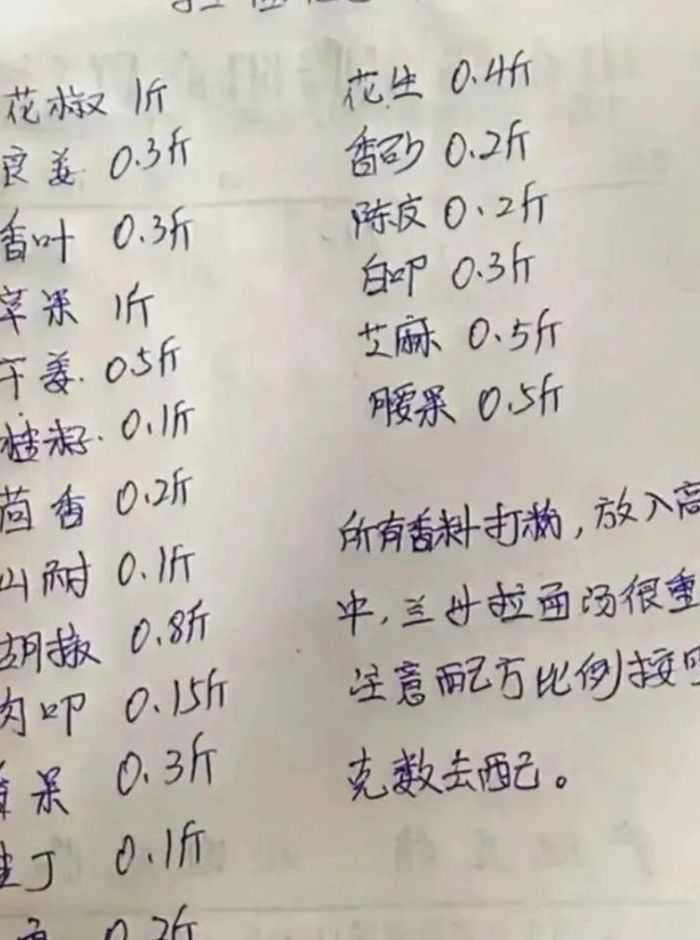 花椒 1斤
良姜 0.3斤
香叶 0.3斤
草果 1斤
干姜. 0.5斤
桂籽. 0.1斤
茴香 0.2斤
山耐 0.1斤
胡椒 0.8斤
肉叩 0.15斤
果 0.3斤
丁 0.1斤
0.2斤
花生 0.4斤
香砂 0.2斤
陈皮 0.2斤
白叩 0.3斤
芝麻 0.5斤
腰果 0.5斤
所有香料打粉,放入高
中,兰州拉面汤很重
注意配方比例按照
克数去配。